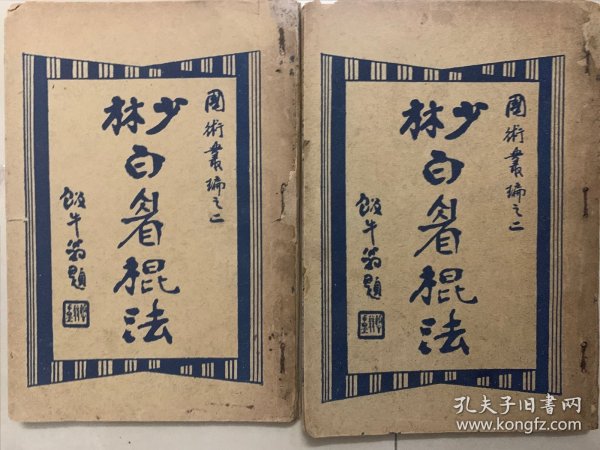 國術叢編之二
少林白眉棍法
飯牛翁題
國術叢編之二
少林白眉棍法
飯牛翁題
孔夫子旧书网
www.kongfz.com